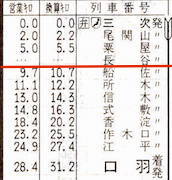 営業キロ 換算キロ 列車番号
0.0 0.0 三次発
2.0 2.2 尾関山〃
5.0 5.5 粟屋〃
長谷〃
9.7 10.7 船佐〃
11.1 12.2 所木〃
13.0 14.3 信木〃
14.8 16.3 式敷〃
18.6 20.5 香淀〃
23.2 25.5 作木口〃
24.9 27.4 江平〃
28.4 31.2 口羽着発